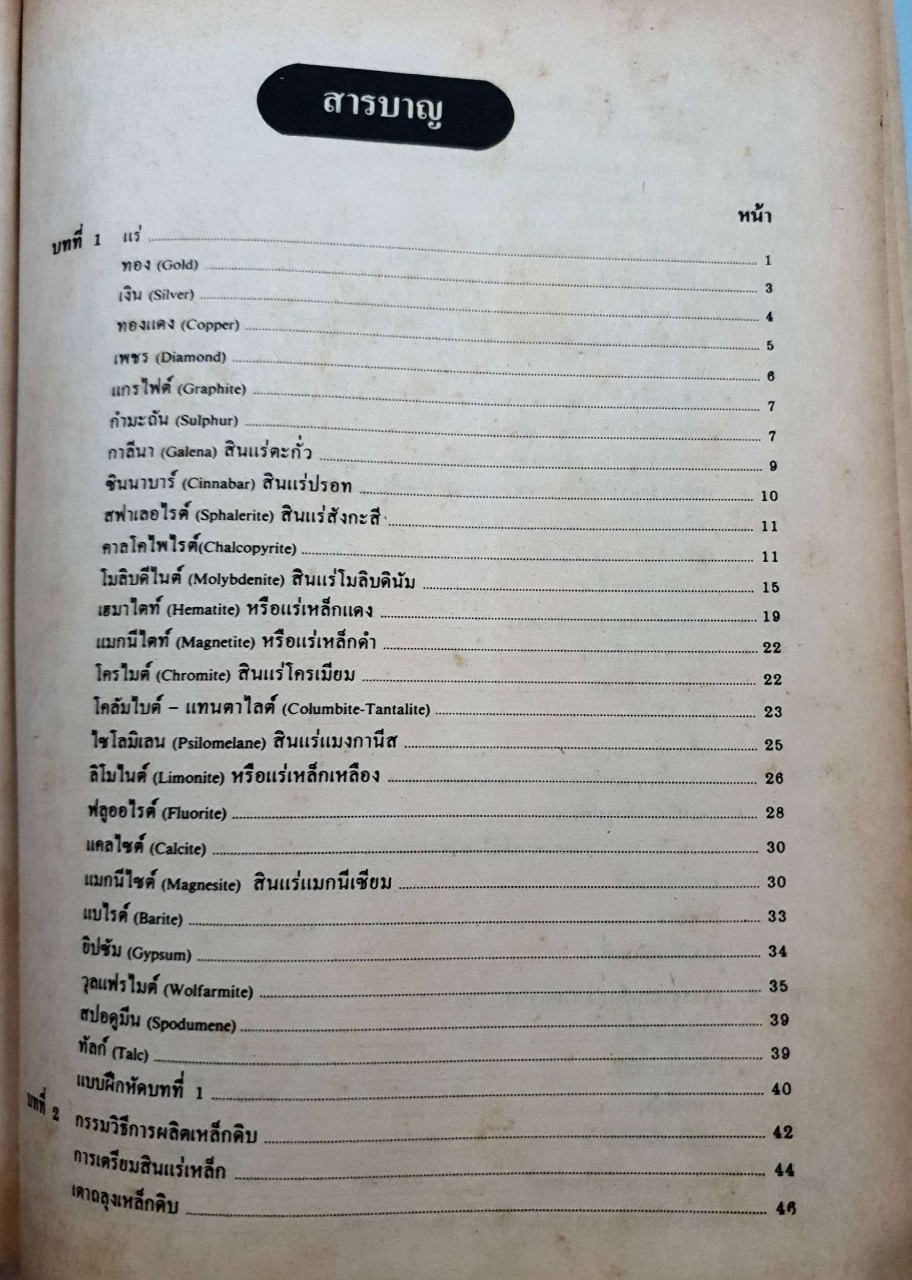 สารบาญ
หน้า
บทที่ 1 แร่ 1
ทอง (Gold) 3
เงิน (Silver) 4
ทองแดง (Copper) 5
เพชร (Diamond) 6
แกรไฟต์ (Graphite) 7
กำมะถัน (Sulphur) 7
กาลีนา (Galena) สินแร่ตะกั่ว 9
ซินนาบาร์ (Cinnabar) สินแร่ปรอท 10
สฟาเลอไรต์ (Sphalerite) สินแร่สังกะสี 11
คาลโคไพไรต์(Chalcopyrite) 11
โมลิบดีไนต์ (Molybdenite) สินแร่โมลิบดินัม 15
เฮมาไตท์ (Hematite) หรือแร่เหล็กแดง 19
แมกนีไตท์ (Magnetite) หรือแร่เหล็กดำ 22
โครไมต์ (Chromite) สินแร่โครเมียม 22
โคลัมไบต์ – แทนตาไลต์ (Columbite-Tantalite) 23
ไซโลมิเลน (Psilomelane) สินแร่แมงกานีส 25
ลิโมไนต์ (Limonite) หรือแร่เหล็กเหลือง 26
ฟลูออไรต์ (Fluorite) 28
แคลไซต์ (Calcite) 30
แมกนีไซต์ (Magnesite) สินแร่แมกนีเซียม 30
แบไรต์ (Barite) 33
ยิปซัม (Gypsum) 34
วุลแฟรไมต์ (Wolfarmite) 35
สปอดูมีน (Spodumene) 39
ทัลก์ (Talc) 39
แบบฝึกหัดบทที่ 1 40
บทที่ 2 กรรมวิธีการผลิตเหล็กดิบ 42
การเตรียมสินแร่เหล็ก 44
เตาถลุงเหล็กดิบ 46